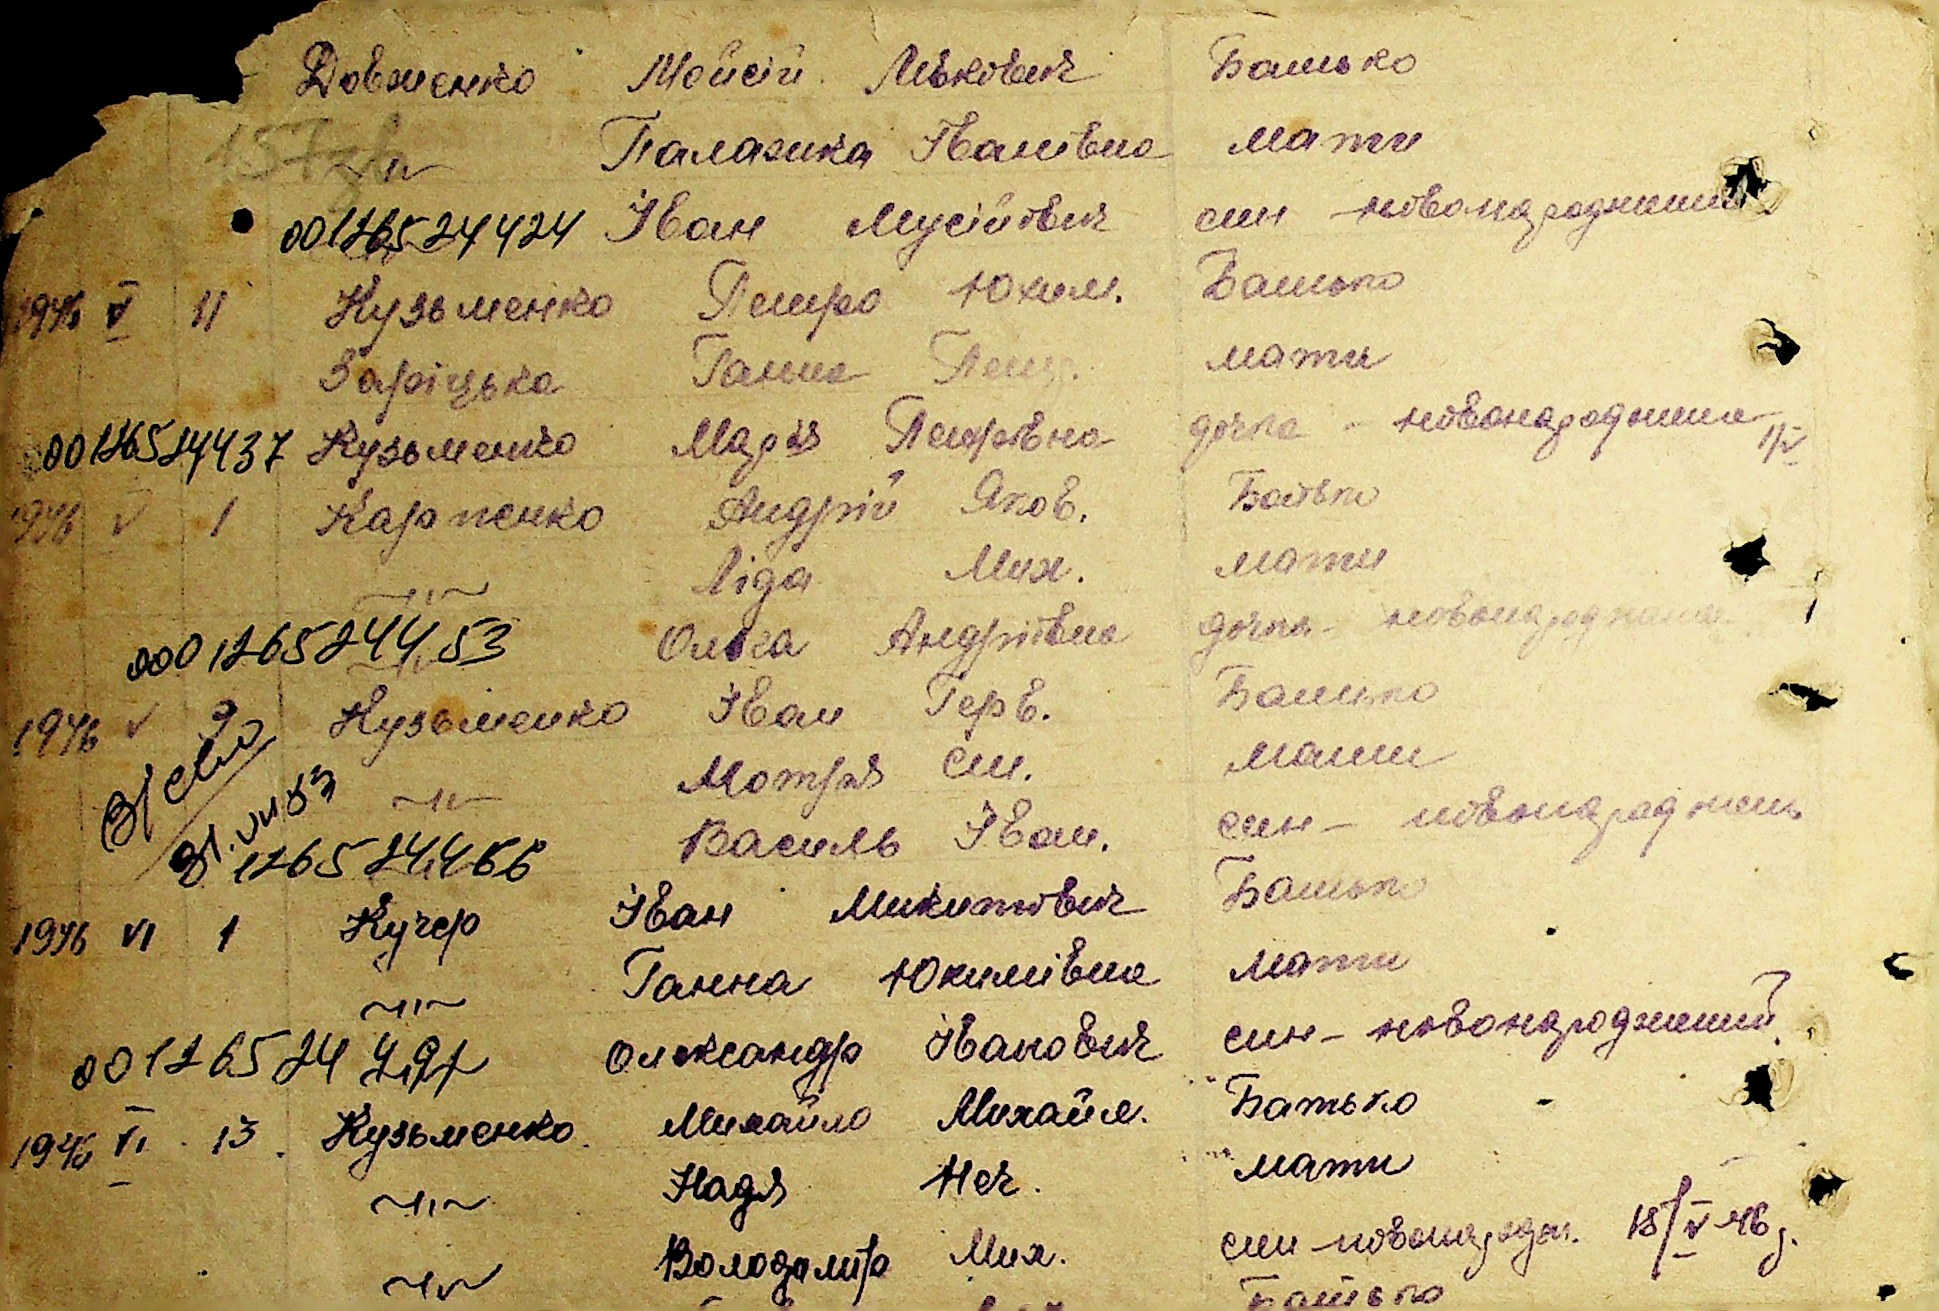 Довженко Мойсій Лькович Батько
—"— Палажка Іванівна мати
00126524424 Іван Мусійович син новонароджений
1946 V 11 Кузьменко Петро Юхим. Батько
Заріцька Ганна Петр. мати
00126524437 Кузьменко Марія Петрівна дочка - новонароджена 11/V
1946 V 1 Карпенко Андрій Яков. Батько
—"— Ліда Мих. мати
0001265244 53 Ольга Андріївна дочка - новонароджена
1946 V 9 Кузьменко Іван Герв. Батько
—"— Мотря Сем. мати
126524466 Василь Іван. син - новонароджень
1946 VI 1 Кучер Іван Микитович Батько
—"— Ганна Юхимівна мати
00126524 497 Олександр Іванович син - новонароджений
1946 VI 13. Кузьменко Михайло Михайл. Батько
—"— Надя Неч. мати
—"— Володимир Мих. син - новонародж. 18/V 46 р.
Батько